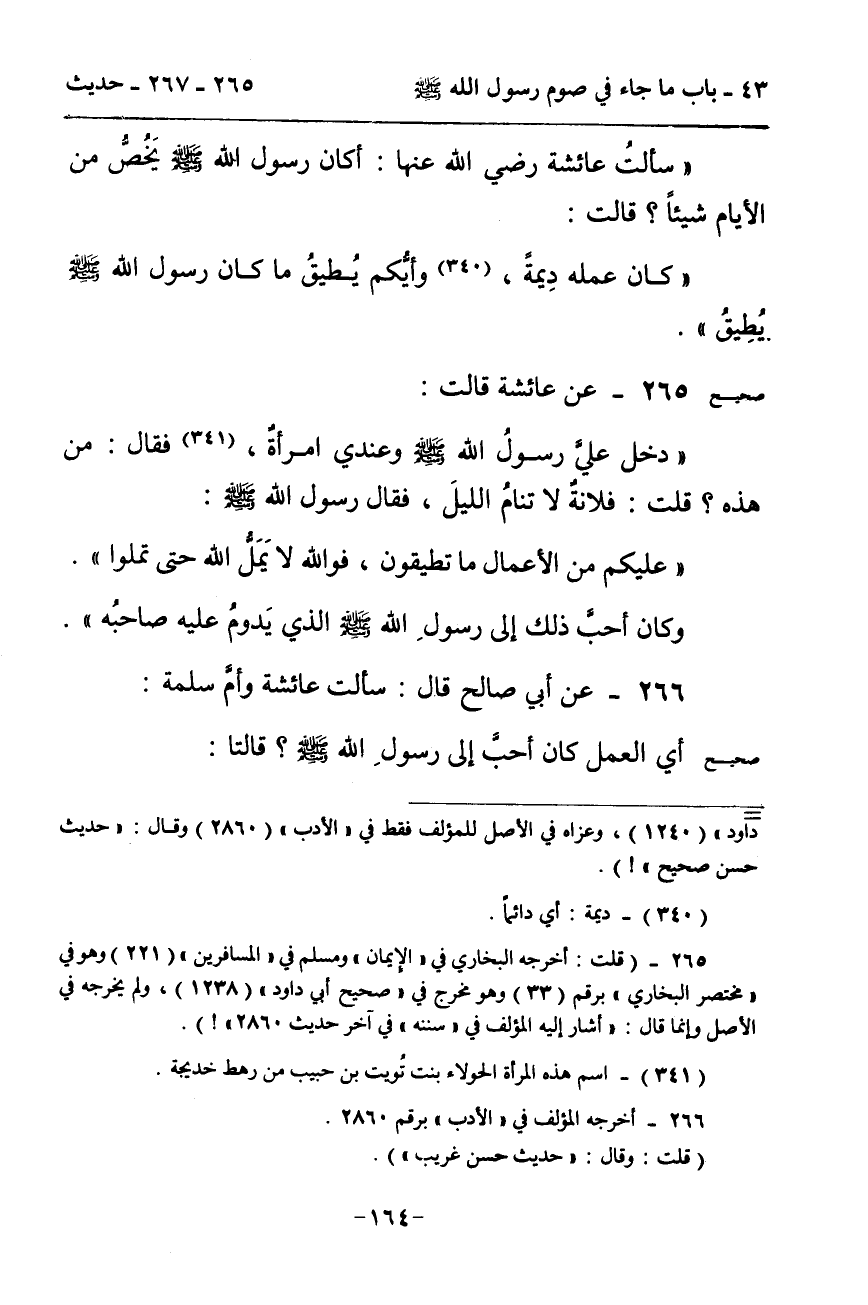 ٤٣ ـ باب ما جاء في صوم رسول الله ﷺ ٢٦٥ ـ ٢٦٧ ـ حديث
« سألتُ عائشة رضي الله عنها : أكان رسول الله ﷺ يَخُصُّ من
الأيام شيئاً ؟ قالت :
« كـان عمله دِيمةً ، (٣٤٠) وأيُّكم يُـطيقُ ما كـان رسول الله ﷺ
يُطِيقُ » .
صحيح ٢٦٥ ـ عن عائشة قالت :
« دخل عليَّ رسـولُ الله ﷺ وعندي امـرأةٌ ، (٣٤١) فقال : من
هذه ؟ قلت : فلانةٌ لا تنامُ الليلَ ، فقال رسول الله ﷺ :
« عليكم من الأعمال ما تطيقون ، فوالله لا يَمَلُّ الله حتى تملوا » .
وكان أحبَّ ذلك إلى رسولِ الله ﷺ الذي يَدومُ عليه صاحبُه » .
٢٦٦ ـ عن أبي صالح قال : سألت عائشة وأمَّ سلمة :
صحيح أي العمل كان أحبَّ إلى رسولِ الله ﷺ ؟ قالتا :
داود » ( ١٢٤٠ ) ، وعزاه في الأصل للمؤلف فقط في « الأدب » ( ٢٨٦٠ ) وقـال : « حديث
حسن صحيح » ! ) .
( ٣٤٠ ) ـ ديمة : أي دائماً .
٢٦٥ ـ ( قلت : أخرجه البخاري في « الإيمان » ومسلم في « المسافرين » ( ٢٢١ ) وهو في
« مختصر البخاري » برقم ( ٣٣ ) وهو مخرج في « صحيح أبي داود » ( ١٢٣٨ ) ، ولم يخرجه في
الأصل وإنما قال : « أشار إليه المؤلف في « سننه » في آخر حديث ٢٨٦٠ » ! ) .
( ٣٤١ ) ـ اسم هذه المرأة الحولاء بنت تُويت بن حبيب من رهط خديجة .
٢٦٦ ـ أخرجه المؤلف في « الأدب » برقم ٢٨٦٠ .
( قلت : وقال : « حديث حسن غريب » ) .
-١٦٤-